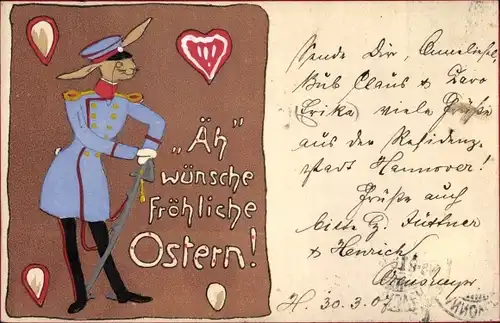 „Äh"
wünsche
fröhliche
Ostern!
Sende Dir, Anneliesel,
Bub Claus & Caro
(Erika) viele Grüße
aus der Residenz-
stadt Hannover!
Grüße auch
bitte Hüttner
& Henrich
H. 30.3.0